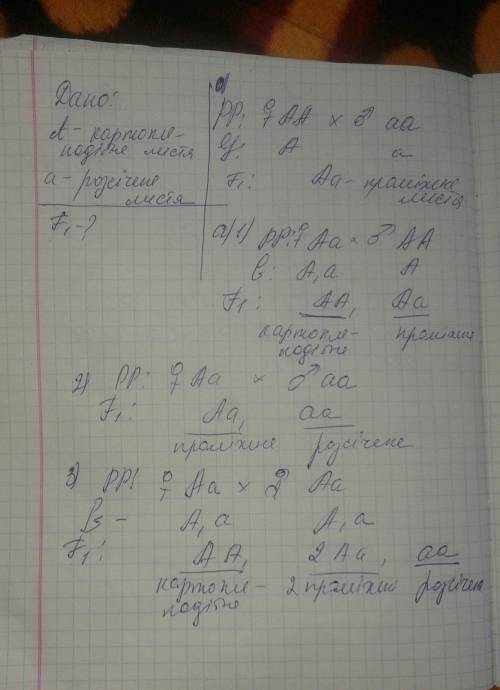 Дано:
A - картопле-
подібне листя
a - розсічене
листя
F₁-?
PP: ♀ AA × ♂ aa
G: A a
F₁: Aa - проміжне
листя
a) 1) PP: ♀ Aa × ♂ AA
G: A, a A
F₁: AA, Aa
картопле-
подібне проміжне
2) PP: ♀ Aa × ♂ aa
F₁: Aa, aa
проміжне розсічене
3) PP: ♀ Aa × Aa
G - A, a A, a
F₁: AA, 2Aa, aa
картопле-
подібне 2 проміжні розсічене